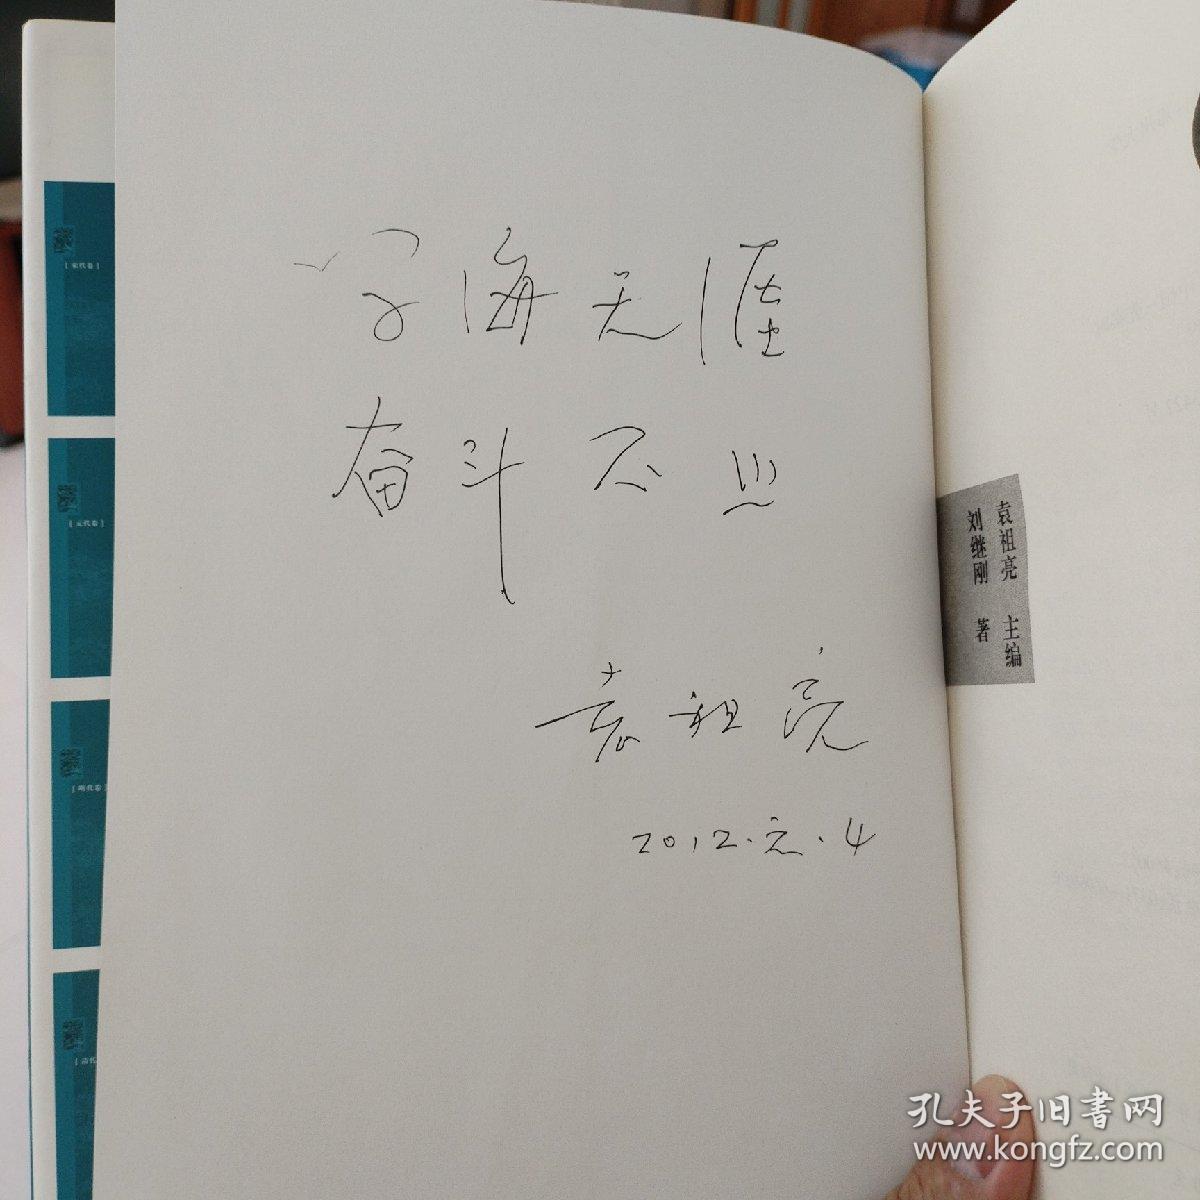 学海无涯
奋斗不止
袁祖亮
2012.元.4
袁祖亮 主编
刘继刚 著
[宋代卷]
[元代卷]
[明代卷]
孔夫子旧书网
www.kongfz.com